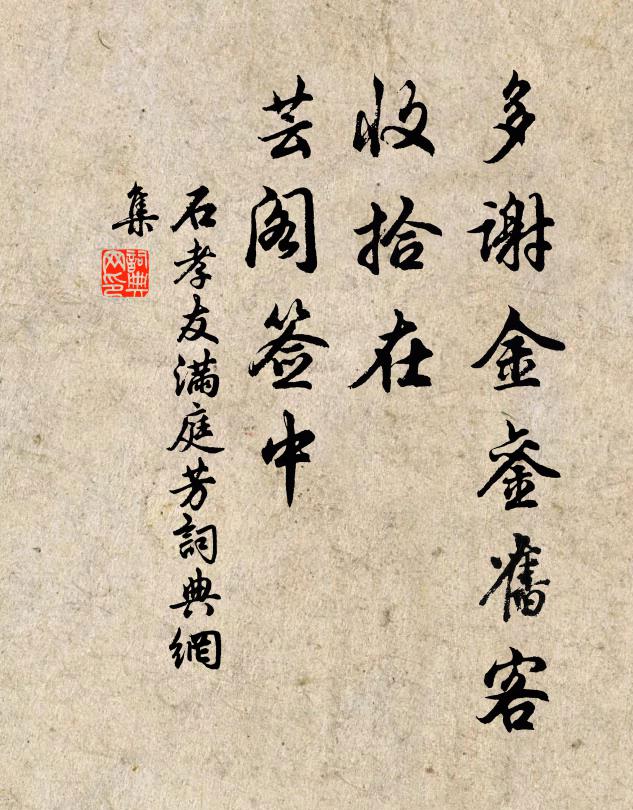 多谢金銮舊客
收拾在
芸阁签中
石孝友满庭芳詞典網
集
詞典网印